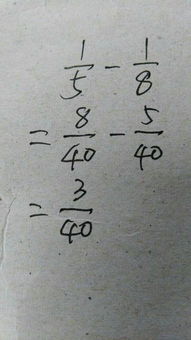 1/5 - 1/8
= 8/40 - 5/40
= 3/40